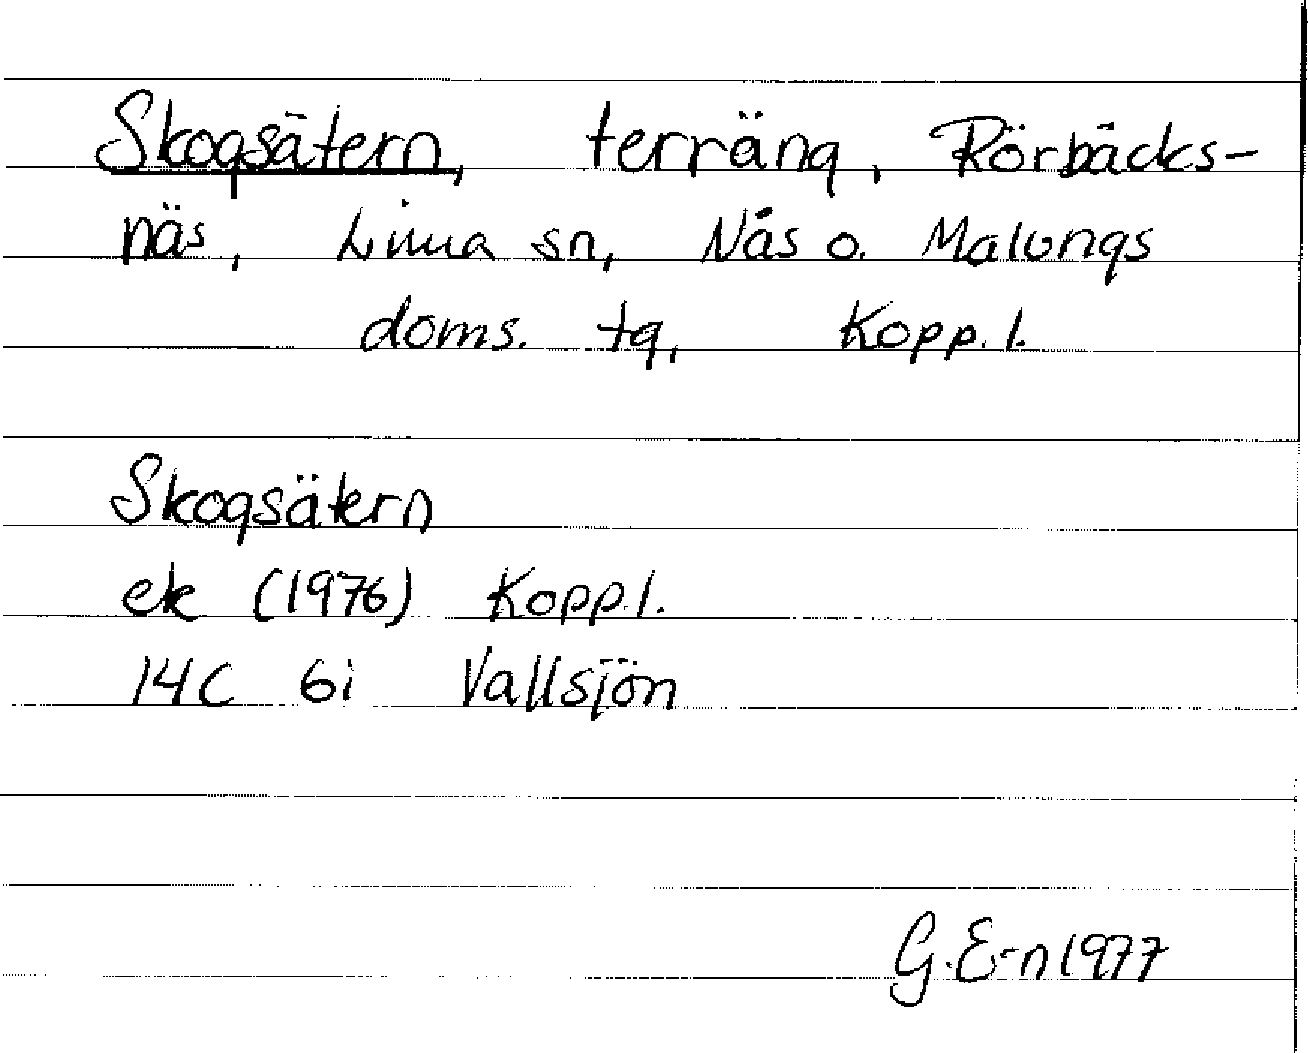 Skogsätern, terräng, Rörbäcks-
näs, Lima sn, Nås o. Malungs
doms. tg, Kopp. l.
Skogsätern
ek (1976) Kopp. l.
14C 6i Vallsjön
G. E-n 1977